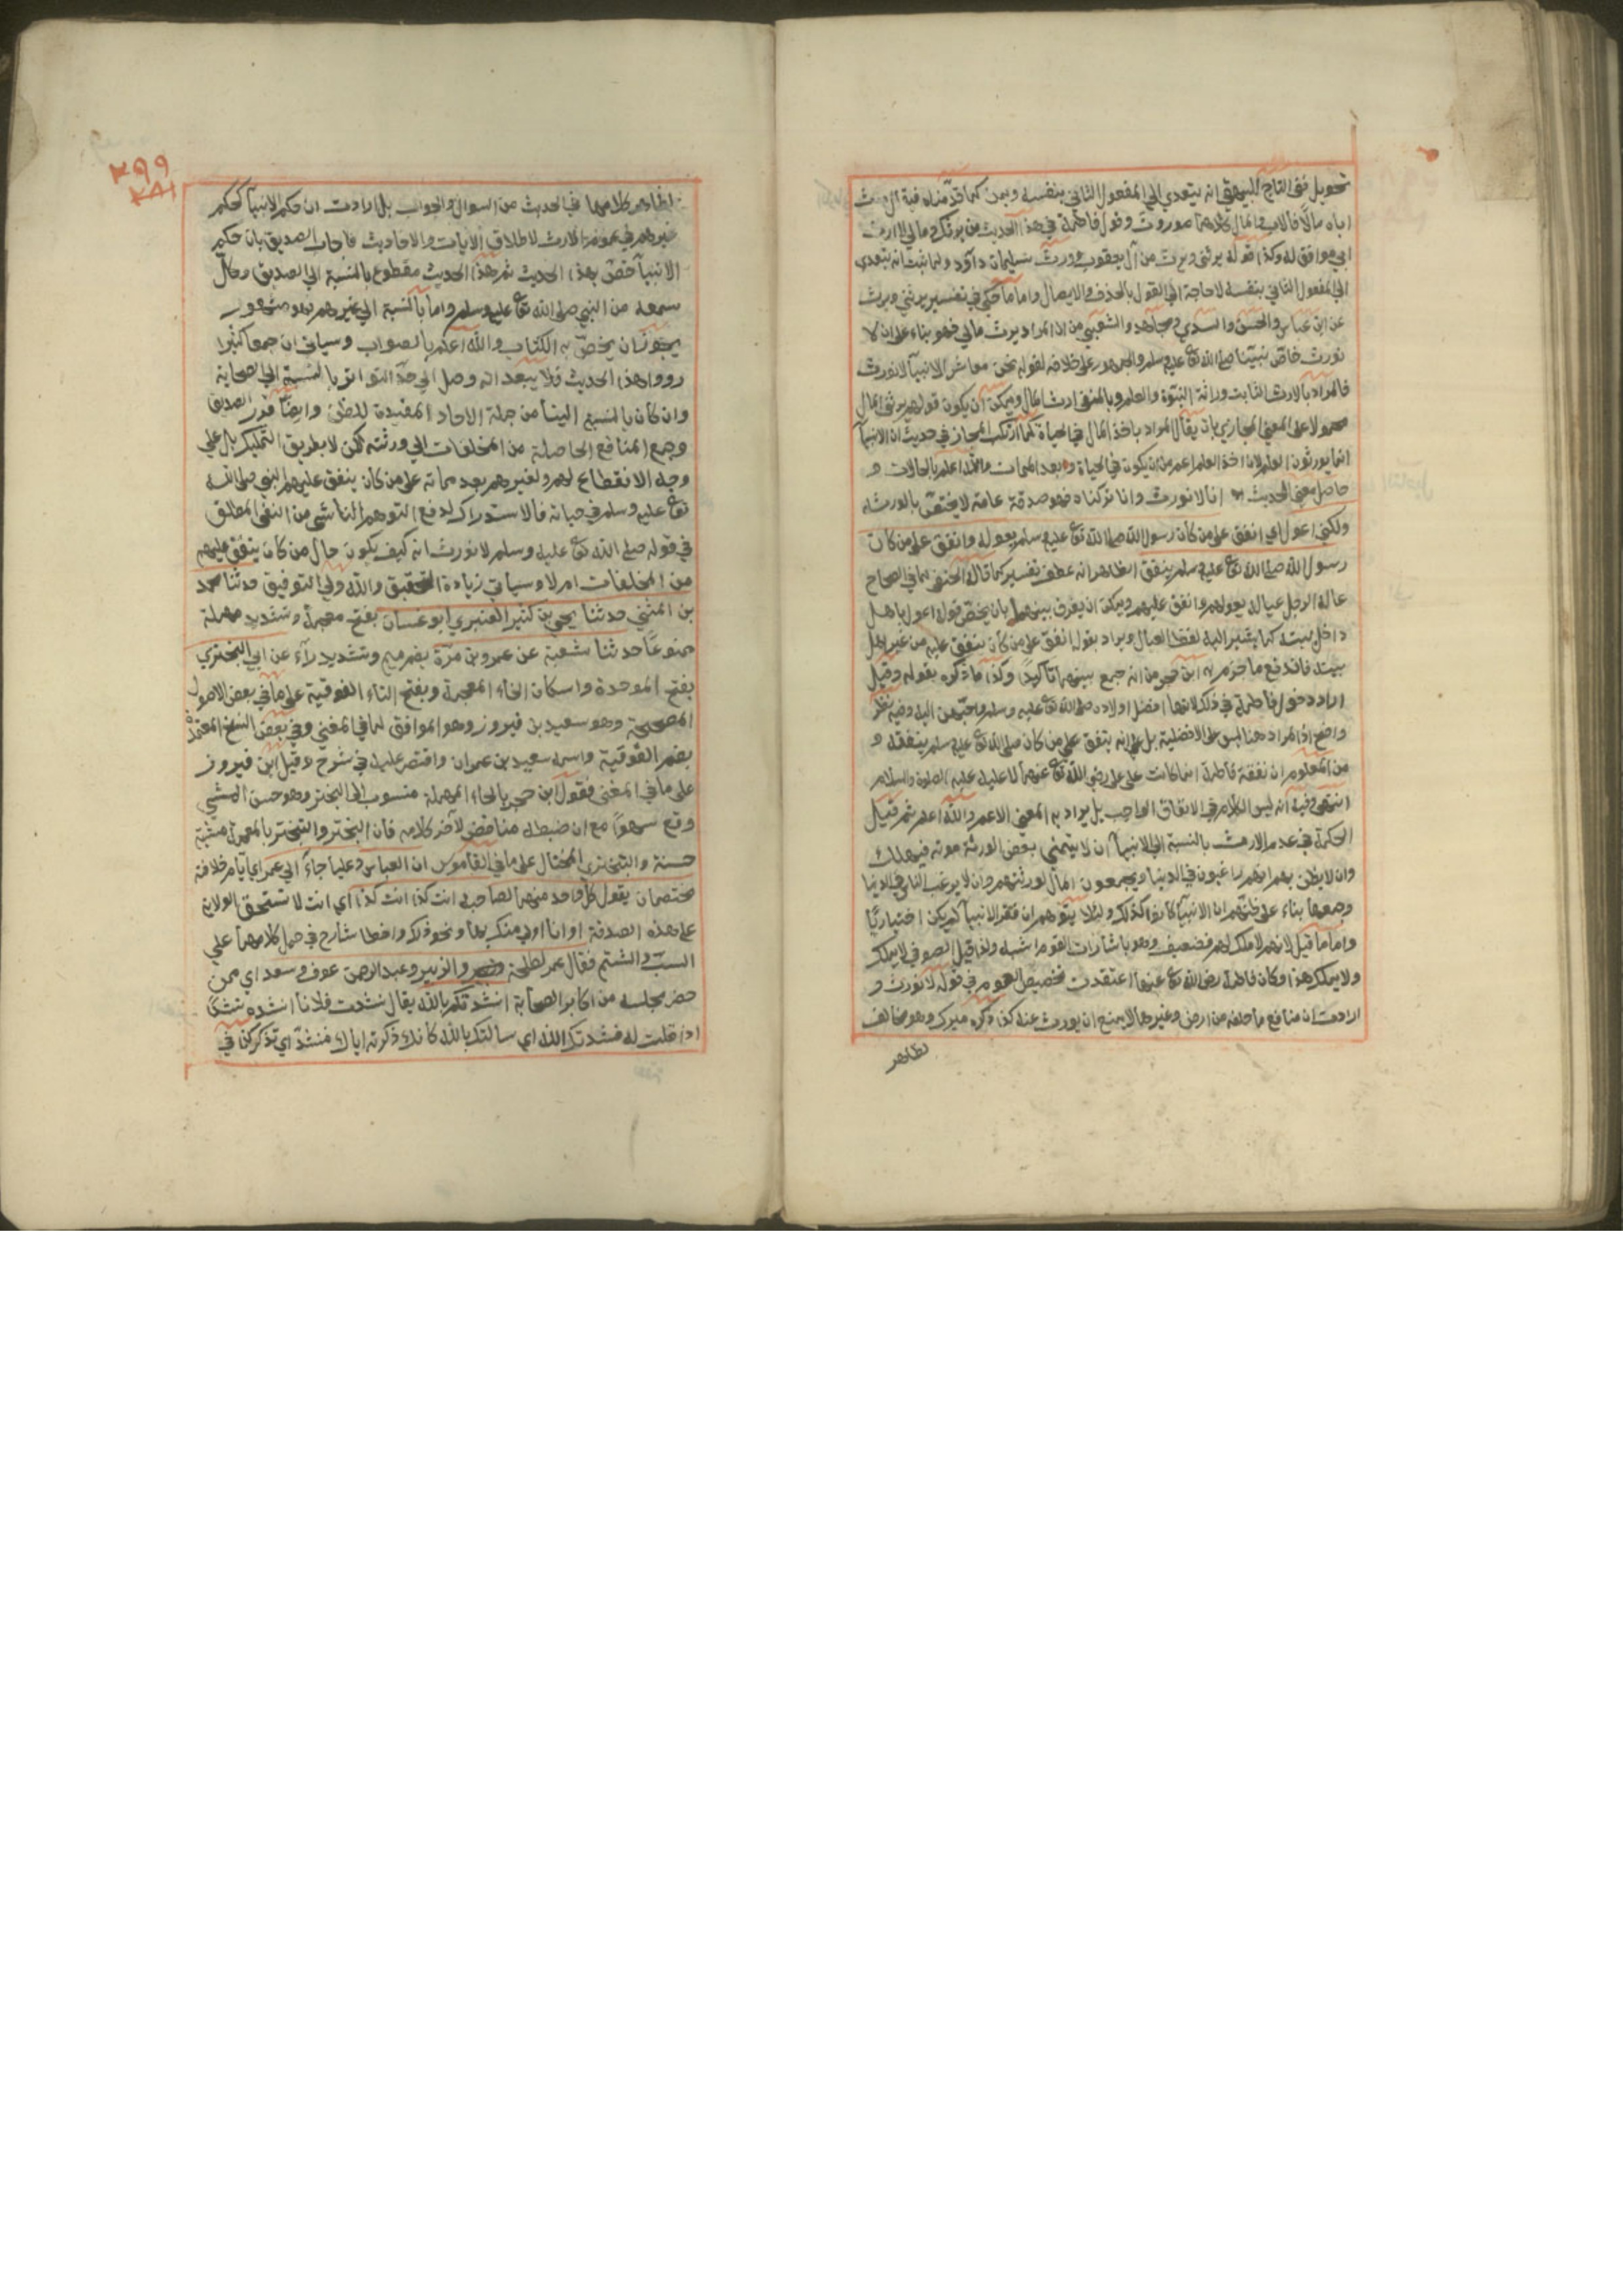 تحويل ففي التاج للبيهقي انه يتعدي الي المفعول الثاني بنفسه وبمن كما قدمناه فيه
اباه مالا فالاب والمال كلاهما موروث وقول فاطمة في هذا الحديث من يرثك ومالي لا ارث
ابي موافق له وكذا قوله يرثني ويرث من آل يعقوب وورث سليمان داود ولما ثبت انه يتعدي
الي المفعول الثاني بنفسه لا حاجة الي القول بالحذف والايصال واما ما حكي في تفسير يرثني ويرث
عن ابن عباس والحسن والسدي ومجاهد والشعبي من ان المراد يرث مالي فهو بناء علي ان لا
نورث خاص بنبينا صلي الله تع عليه وسلم والجمهور علي خلافه لقوله نحن معاشر الانبيا لا نورث
فالمراد بالارث الثابت وراثة النبوة والعلم وبالمنفي ارث المال ويمكن ان يكون قولهم يرثني المال
محمولا علي المعني المجازي بان يقال المراد به اخذ المال في الحياة كما ارتكب المجاز في حديث ان الانبيآ
انما يورثون العلم لان اخذ العلم اعم من ان يكون في الحياة وبعد الممات والله اعلم بالحالات و
حاصل معني الحديث انا لا نورث وان ما تركناه فهو صدقة عامة لا يختص بالورثة
ولكني اعول اي انفق علي من كان رسول الله صلي الله تع عليه وسلم يعوله وانفق علي من كان
رسول الله صلي الله تع عليه وسلم ينفق الظاهر انه عطف تفسير كما قاله الحنفي لما في الصحاح
عال الرجل عياله يعولهم وانفق عليهم ويمكن ان يفرق بينهما بان يخص قوله اعول باهل
داخل بيته كما يشير اليه لفظ العيال ويراد بقوله انفق علي من كان ينفق عليه من غير اهل
بيته فاندفع ما جزم به ابن حجر من انه جمع بينهما تاكيدا وكذا ما ذكره بقوله وقيل
اراد دخول فاطمة في ذلك لانها افضل اولاده صلي الله تع عليه وسلم واحبهن اليه وفيه نظر
واضح اذ المراد هنا ليس علي الافضلية بل علي انه ينفق علي من كان صلي الله تع عليه وسلم ينفقه و
من المعلوم ان نفقة فاطمة انما كانت علي علي رضي الله تع عنهما لا عليه عليه الصلوة والسلام
انتهي وفيه انه ليس الكلام في الانفاق الواجب بل يراد به المعني الاعم والله اعلم ثم قيل
الحكمة في عدم الارث بالنسبة الي الانبيآ ان لا يتمني بعض الورثة موته فيهلك
وان لا يظن بهم انهم راغبون في الدنيا ويجمعون المال لورثتهم وان لا يرغب الناس في الدنيا
وجمعها بناء علي ظنهم ان الانبيآ كانوا كذلك ولئلا يتوهم ان فقر الانبيآ لم يكن اختياريا
واما ما قيل لانهم لا ملك لهم فضعيف وهو باشارات القوم اشبه ولذا قيل الصوفي لا يملك
ولا يملك هذا وكان فاطمة رضي الله تع عنها اعتقدت تخصيص العموم في قوله لا نورث و
ارادت ان منافع ما خلفه من ارض وغيرها لا يمنع ان يورث عنه كذا ذكره ميرك وهو مخالف
لظاهر
٢٩٩
٢٨١
لظاهر كلامهما في الحديث من السوال والجواب بل ارادت ان حكم الانبيآ كحكم
غيرهم في عموم الارث لاطلاق الايات والاحاديث فاجاب الصديق بان حكم
الانبيآ خص بهذا الحديث ثم هذا الحديث مقطوع بالنسبة الي الصديق وكال
سمعه من النبي صلي الله تع عليه وسلم واما بالنسبة الي غيرهم فهو مشهور
يجوز ان يخص به الكتاب والله اعلم بالصواب وسياتي ان جمعا كثيرا
رووا هذا الحديث فلا يبعد انه وصل الي حد التواتر بالنسبة الي الصحابة
وان كان بالنسبة الينا من جملة الاحاد المفيدة للظن وايضا قرر الصديق
وجمع المنافع الحاصلة من المخلفات الي ورثته لكن لا بطريق التمليك بل علي
وجه الانقطاع لهم ولغيرهم بعد مماته علي من كان ينفق عليهم النبي صلي الله
تع عليه وسلم في حياته فالاستدراك لدفع التوهم الناشي من النفي المطلق
في قوله صلي الله تع عليه وسلم لا نورث انه كيف يكون حال من كان ينفق عليهم
من المخلفات ام لا وسياتي زيادة التحقيق والله ولي التوفيق حدثنا محمد
بن المثني حدثنا يحيي بن كثير العنبري ابو غسان بفتح معجمة وتشديد مهملة
ممنوعا حدثنا شعبة عن عمرو بن مرة بضم ميم وتشديد رآء عن ابي البختري
بفتح الموحدة واسكان الخاء المعجمة وبفتح التاء الفوقية علي ما في بعض الاصول
المصححة وهو سعيد بن فيروز وهو الموافق لما في المغني وفي بعض النسخ المعتمدة
بضم الفوقية واسمه سعيد بن عمران واقتصر عليه في شرح وقيل ابن فيروز
علي ما في المغني فقول ابن حجر بالحاء المهملة منسوب الي البحتر وهو حسن المشي
وقع سهوا مع ان ضبطه مناقض لآخر كلامه فان البختر والتبختر بالمعجمة مشية
حسنة والبختري المختال علي ما في القاموس ان العباس وعليا جاءا الي عمر اي ايام خلافته
يختصمان يقول كل واحد منهما لصاحبه انت كذا انت كذا اي انت لا تستحق الولاية
علي هذه الصدقة او انا اولي منك بها ونحو ذلك واخطا شارح في حمل كلامهما علي
السب والشتم فقال عمر لطلحة والزبير وعبد الرحمن عوف وسعد اي ممن
حضر مجلسه من اكابر الصحابة انشدتكم بالله يقال نشدت فلانا انشده نشدا
اذا قلت له نشدتك الله اي سالتك بالله كانك ذكرته اياه فنشد اي تذكر كذا في